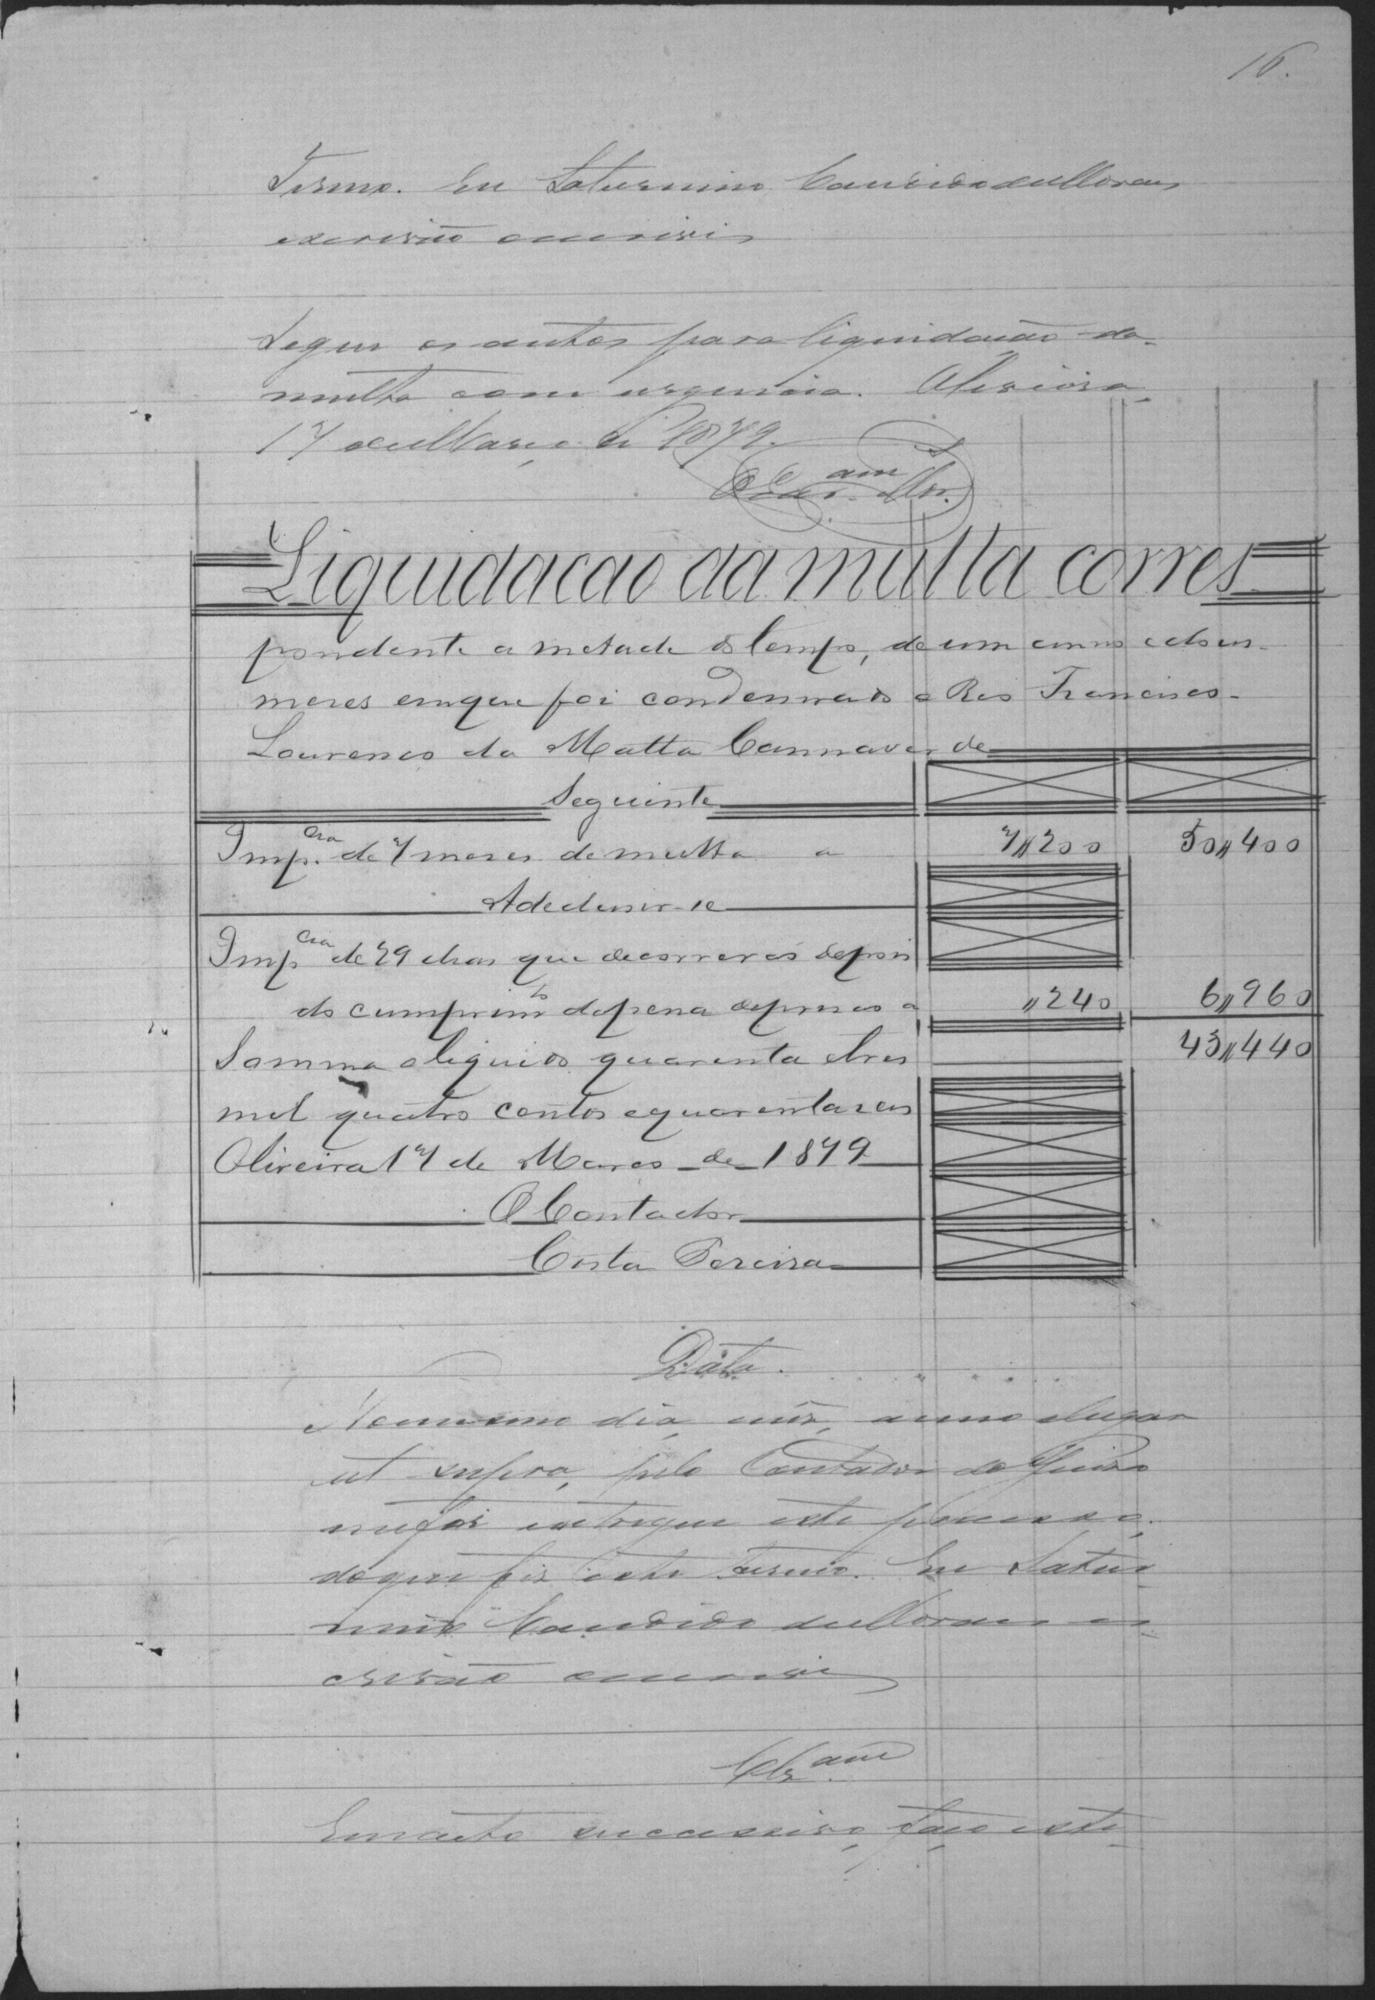 16.
Termo. Eu Saturnino Candido de Moraes
escrivão o escrevi
Segue os autos para liquidação da
multa com urgencia. Oliveira,
17 de Março de 1879.
Liquidacao da multa corres
pondente a metade do tempo, de um anno e dous
mezes em que foi condemnado o Reo Francisco
Lourenco da Matta Cannaverde
Seguinte
Imp.cia de 7 mezes de multa a 7,,200 50,,400
A deduzir-se
Imp.cia de 29 dias que decorreraõ depois
do cumprimto da pena de prisaõ a ,,240 6,,960
Somma o liquido quarenta e tres 43,,440
mil quatro centos e quarenta reis
Oliveira 17 de Março de 1879
O Contador
Costa Pereira
Data.
No mesmo dia, mês, anno e lugar
ut supra, pelo Contador do Juizo
me foi entregue este processo,
do que fiz este termo. Eu Satur
nino Candido de Moraes es
crivão o escrevi
Clzam
Em acto successivo, faço este